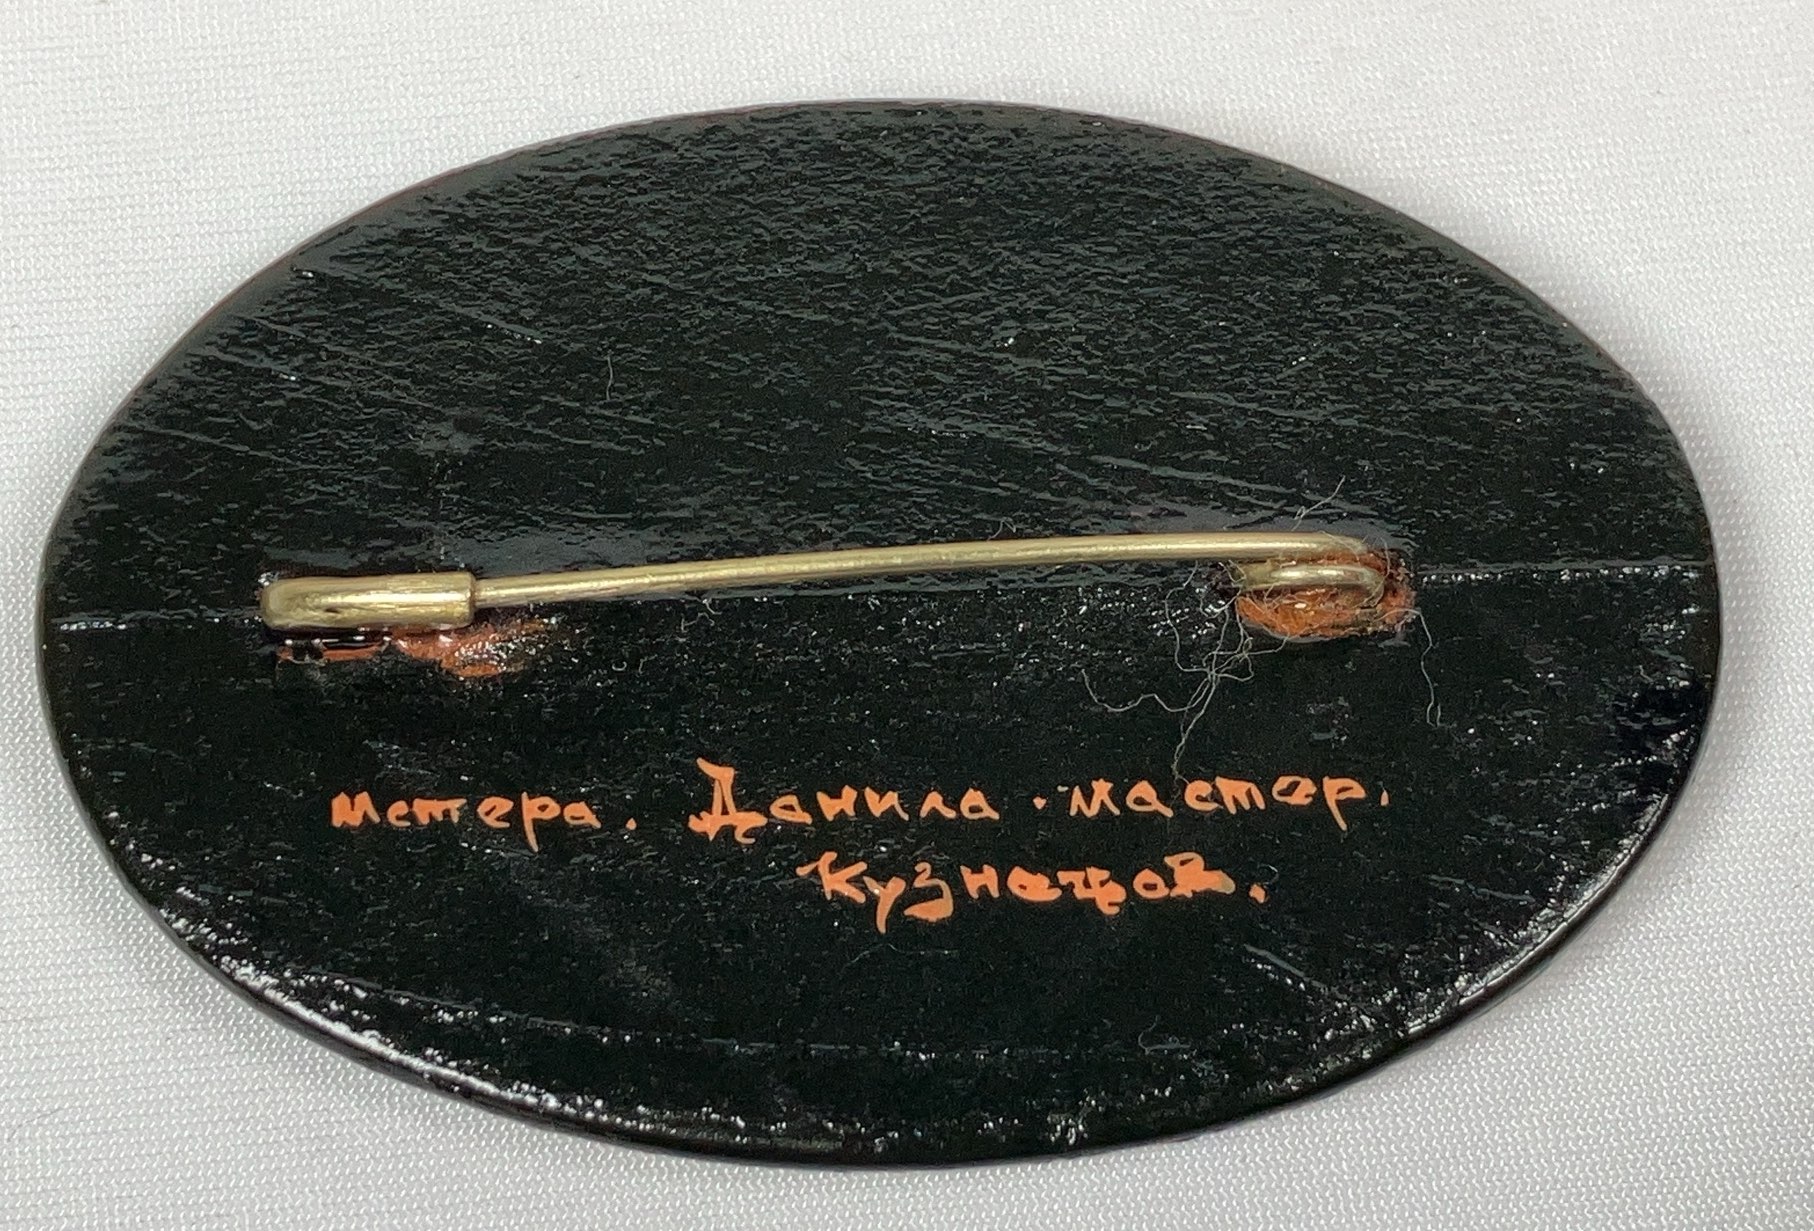 мстера. Данила·мастер.
Кузнецов.